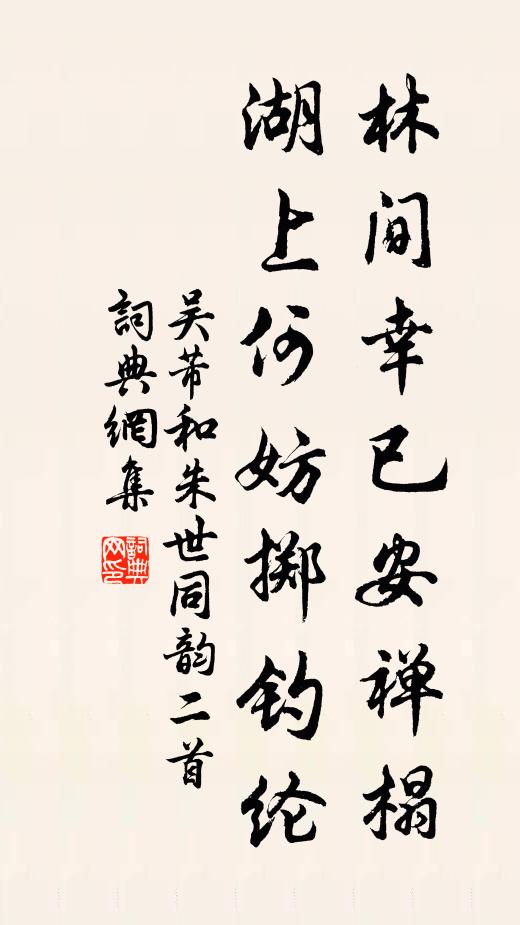 林间幸已安禅榻
湖上何妨掷钓纶
吴芾和朱世同韵二首
詞典網集
詞典网印